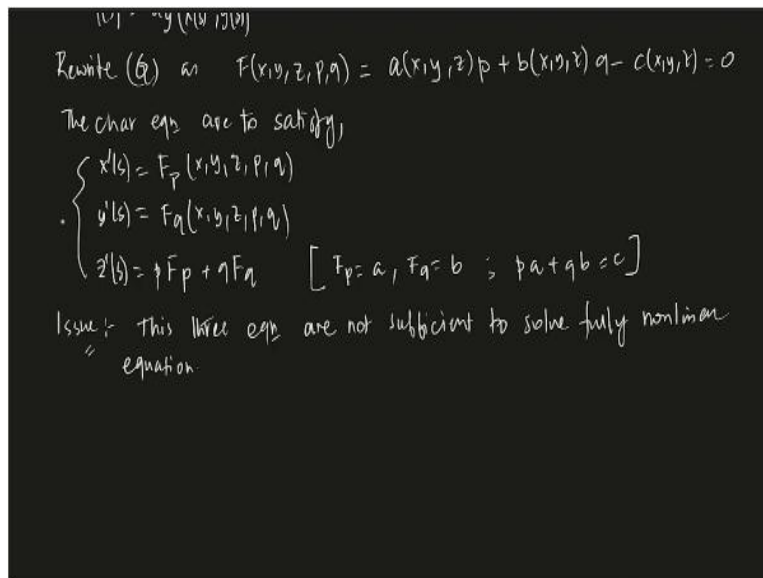 Rewrite (Q) as F(x,y,z,p,q) = a(x,y,z)p + b(x,y,z)q - c(x,y,z) = 0
The char eqn are to satisfy,
x'(s) = Fp (x,y,z,p,q)
y'(s) = Fq (x,y,z,p,q)
z'(s) = pFp + qFq [Fp = a, Fq = b ; pa + qb = c]
Issue :- This three eqn are not sufficient to solve fully nonlinear
equation.